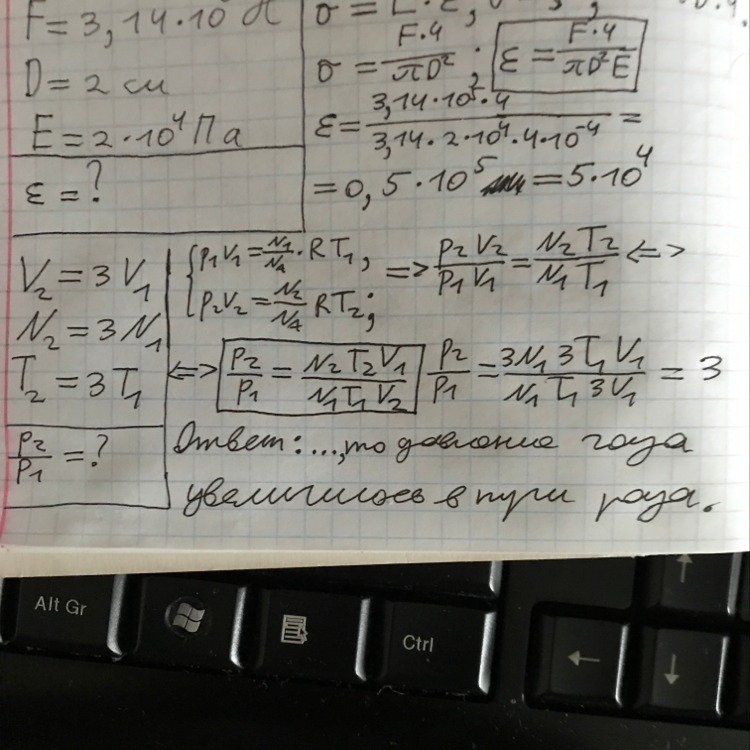 F = 3,14·10 Н
D = 2 см
E = 2·10⁴ Па
ε = ?
σ = F·4/πD² ; ε = F·4/πD²E
ε = 3,14·10⁵·4/3,14·2·10⁴·4·10⁻⁴ =
= 0,5·10⁵ = 5·10⁴
V₂ = 3V₁
N₂ = 3N₁
T₂ = 3T₁
P₂/P₁ = ?
{P₁V₁ = N₁/N_A · RT₁,
P₂V₂ = N₂/N_A RT₂;
=> P₂V₂/P₁V₁ = N₂T₂/N₁T₁ <=>
<=> P₂/P₁ = N₂T₂V₁/N₁T₁V₂ P₂/P₁ = 3N₁3T₁V₁/N₁T₁3V₁ = 3
Ответ: ..., то давление газа
увеличилось в три раза.
Alt Gr
Ctrl